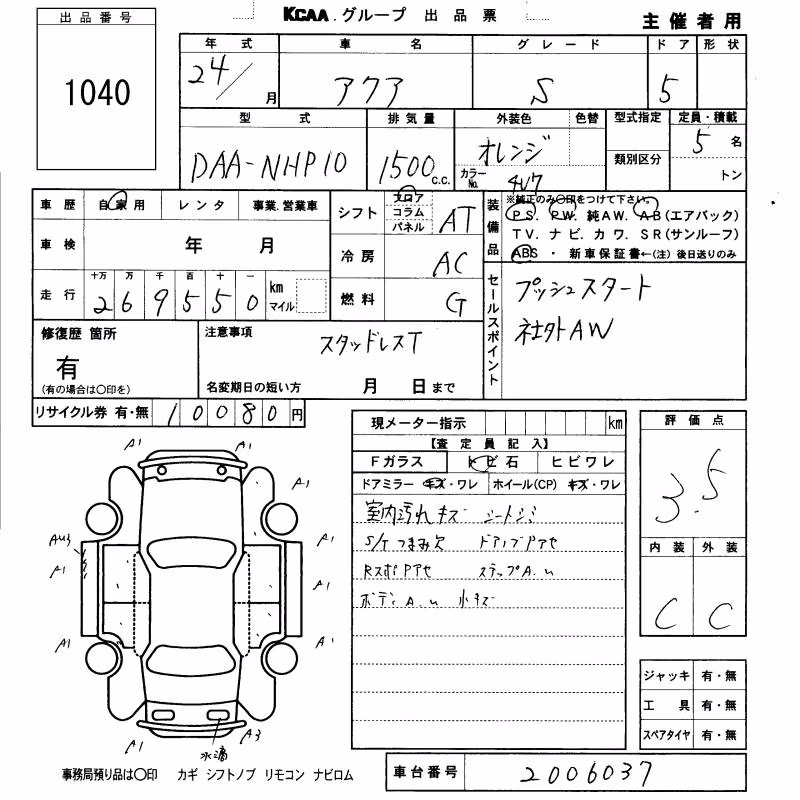 KCAA.グループ 出品票
主催者用
出品番号
1040
年式 車名 グレード ドア 形状
24/月 アクア S 5
型式 排気量 外装色 色替 型式指定 定員・積載
DAA-NHP10 1500c.c. オレンジ 類別区分 5名
カラーNo. 4U7 トン
車歴 自家用 レンタ 事業.営業車
シフト フロア コラム パネル AT
装備品 ※純正のみ○印をつけて下さい。
PS. PW. 純AW. AB(エアバック)
TV. ナビ. カワ. SR(サンルーフ)
ABS ・ 新車保証書←(注)後日送りのみ
車検 年 月
冷房 AC
走行 十万 万 千 百 十 一
269550 km マイル
燃料 G
セールスポイント プッシュスタート
社外AW
修復歴 箇所
有
(有の場合は○印を)
注意事項 スタッドレスT
名変期日の短い方 月 日まで
リサイクル券 有・無 10080円
現メーター指示 km
【査定員記入】
Fガラス トビ石 ヒビワレ
ドアミラー キズ・ワレ ホイール(CP) キズ・ワレ
室内汚れキズ シートシミ
S/Tつまみ欠 ドアノブPアセ
RスポPアセ ステップA.U
ボディA.U 小キズ
評価点
3.5
内装 外装
C C
A1 A1
A1
AU3 A1
A1 A1
A1 A1
A1 A3
水滴
ジャッキ 有・無
工具 有・無
スペアタイヤ 有・無
事務局預り品は○印 カギ シフトノブ リモコン ナビロム
車台番号 2006037